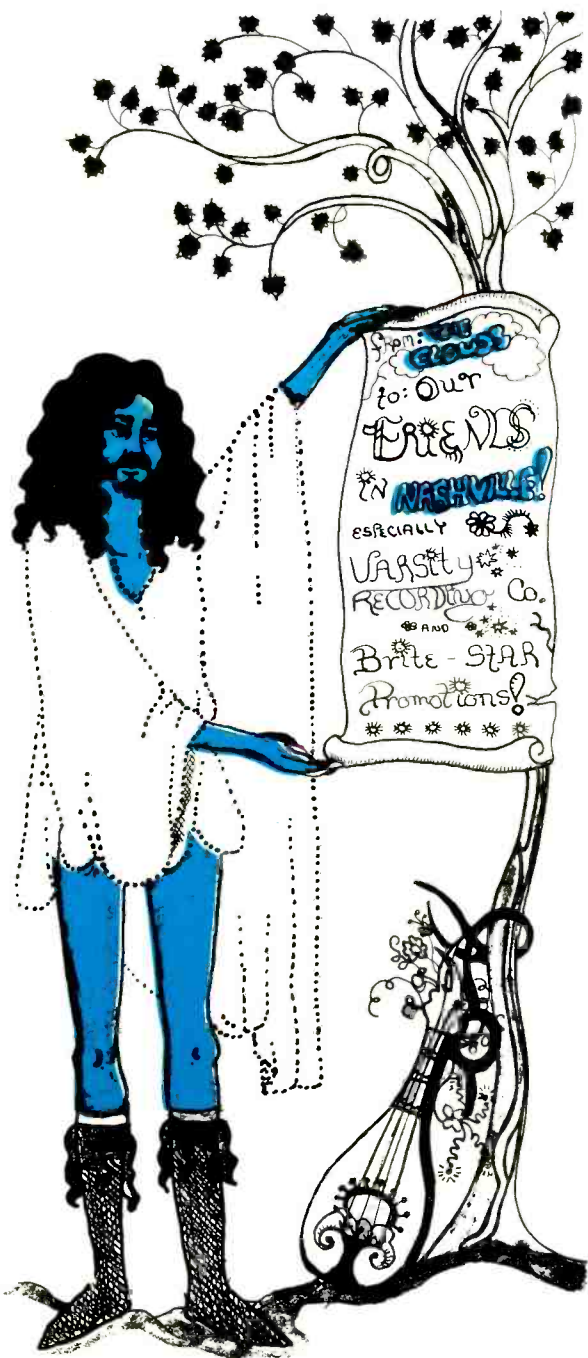 from: THE
CLOUDS
to: OUR
FRIENDS
IN NASHVILLE!
ESPECIALLY
VARSITY
RECORDING Co.
AND
Brite-STAR
Promotions!